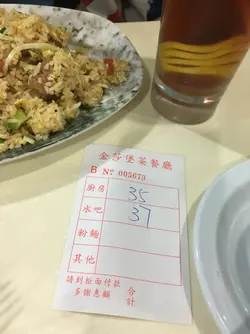 金莎堡菜餐廳
B Nº 005673
廚房 35
水吧 37
粉麵
其他
請到柜面付款 合
多謝惠顧 計